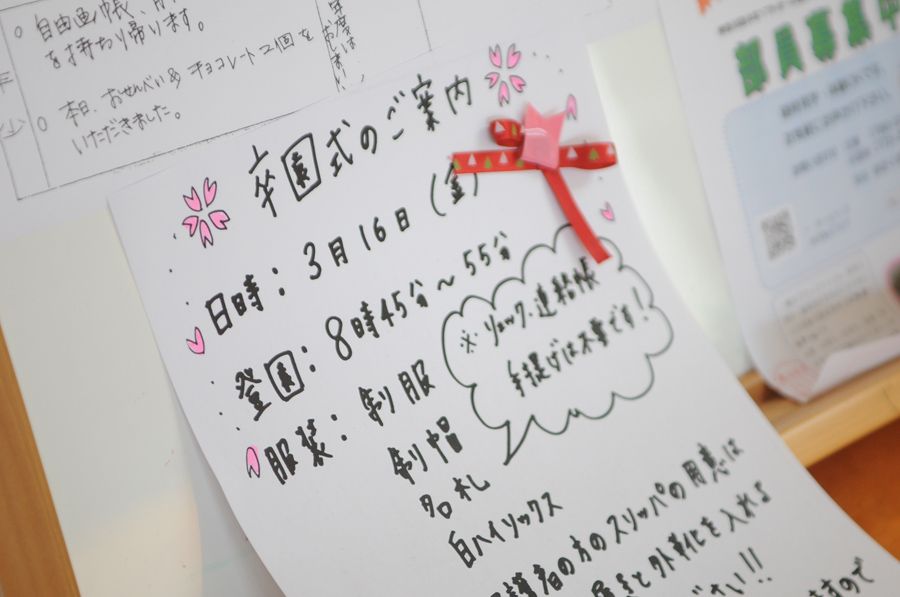 自由画帳、
を持ち帰ります。
本日、おせんべい& チョコレート2個を
いただきました。
卒園式のご案内
日時：3月16日（金）
登園：8時45分〜55分
※リュック・連絡帳
手提げは不要です！
服装：制服
制帽
名札
白ハイソックス
護者の方のスリッパの用意は
と外靴を入れる
さい!!
ますので
部員募集中